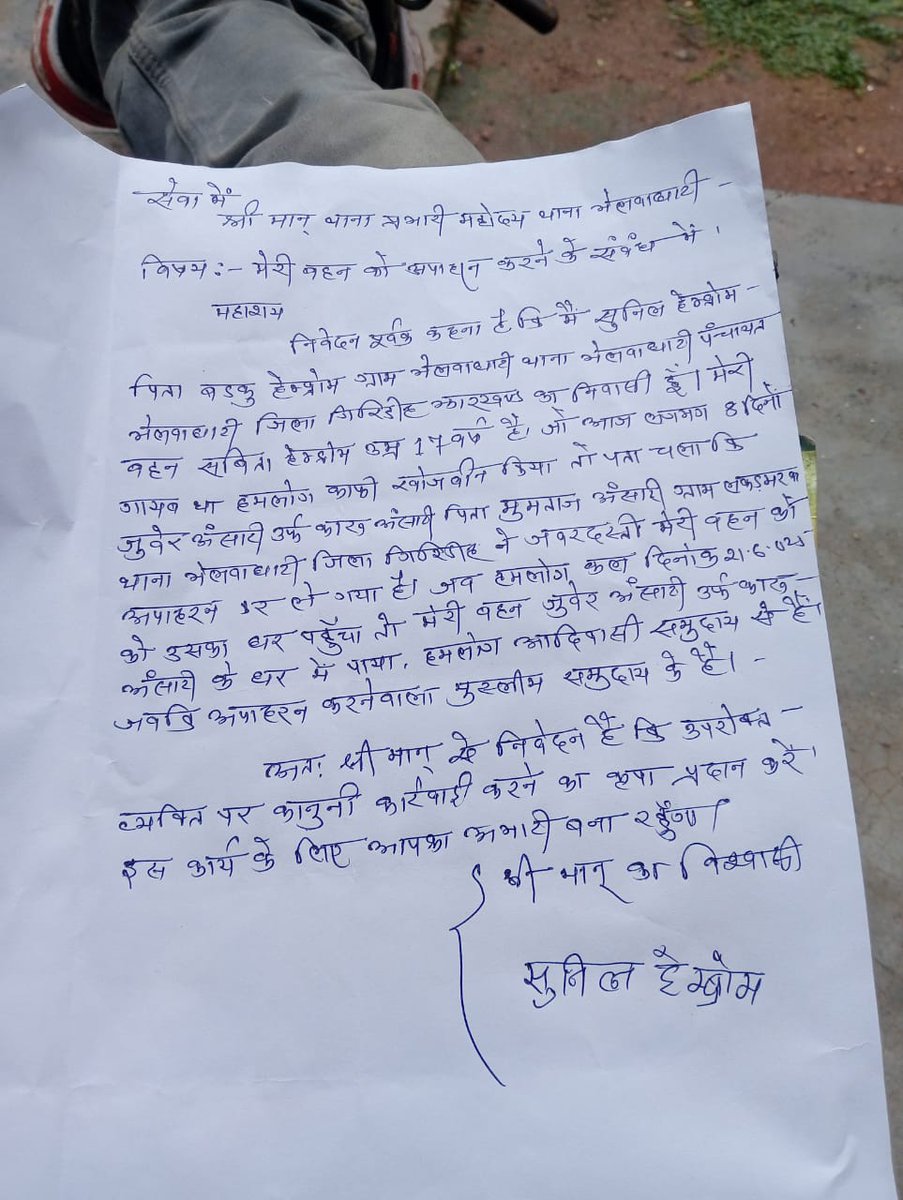 सेवा में
श्री मान् थाना प्रभारी महोदय थाना भेलवाघाटी -
विषय :- मेरी बहन को अपाहरन करने के संबंध में ।
महाशय
निवेदन पूर्वक कहना है कि मैं सुनिल हेम्ब्रोम -
पिता बड़कु हेम्ब्रोम ग्राम भेलवाघाटी थाना भेलवाघाटी पंचायत
भेलवाघाटी जिला गिरिडीह झारखण्ड का निवासी हूँ । मेरी
बहन सबिता हेम्ब्रोम उम्र 17 वर्ष है, जो आज लगभग 8 दिनों
गायब था हमलोग काफी खोजबीन किया तो पता चला कि
जुबेर अंसारी उर्फ कारू अंसारी पिता मुमताज अंसारी ग्राम
थाना भेलवाघाटी जिला गिरिडीह ने जबरदस्ती मेरी बहन को
अपाहरन कर ले गया है। जब हमलोग कल दिनांक 21.6.025
को उसका घर पहुँचा तो मेरी बहन जुबेर अंसारी उर्फ कारू -
अंसारी के घर में पाया, हमलोग आदिवासी समुदाय से हैं।
जबकि अपाहरन करनेवाला मुस्लीम समुदाय के है। -
अतः श्री मान् से निवेदन है कि उपरोक्त -
व्यक्ति पर कानुनी कार्रवाई करने का कृपा प्रदान करें।
इस कार्य के लिए आपका अभारी बना रहूँगा।
श्री मान् का विश्वासी
सुनिल हेम्ब्रोम